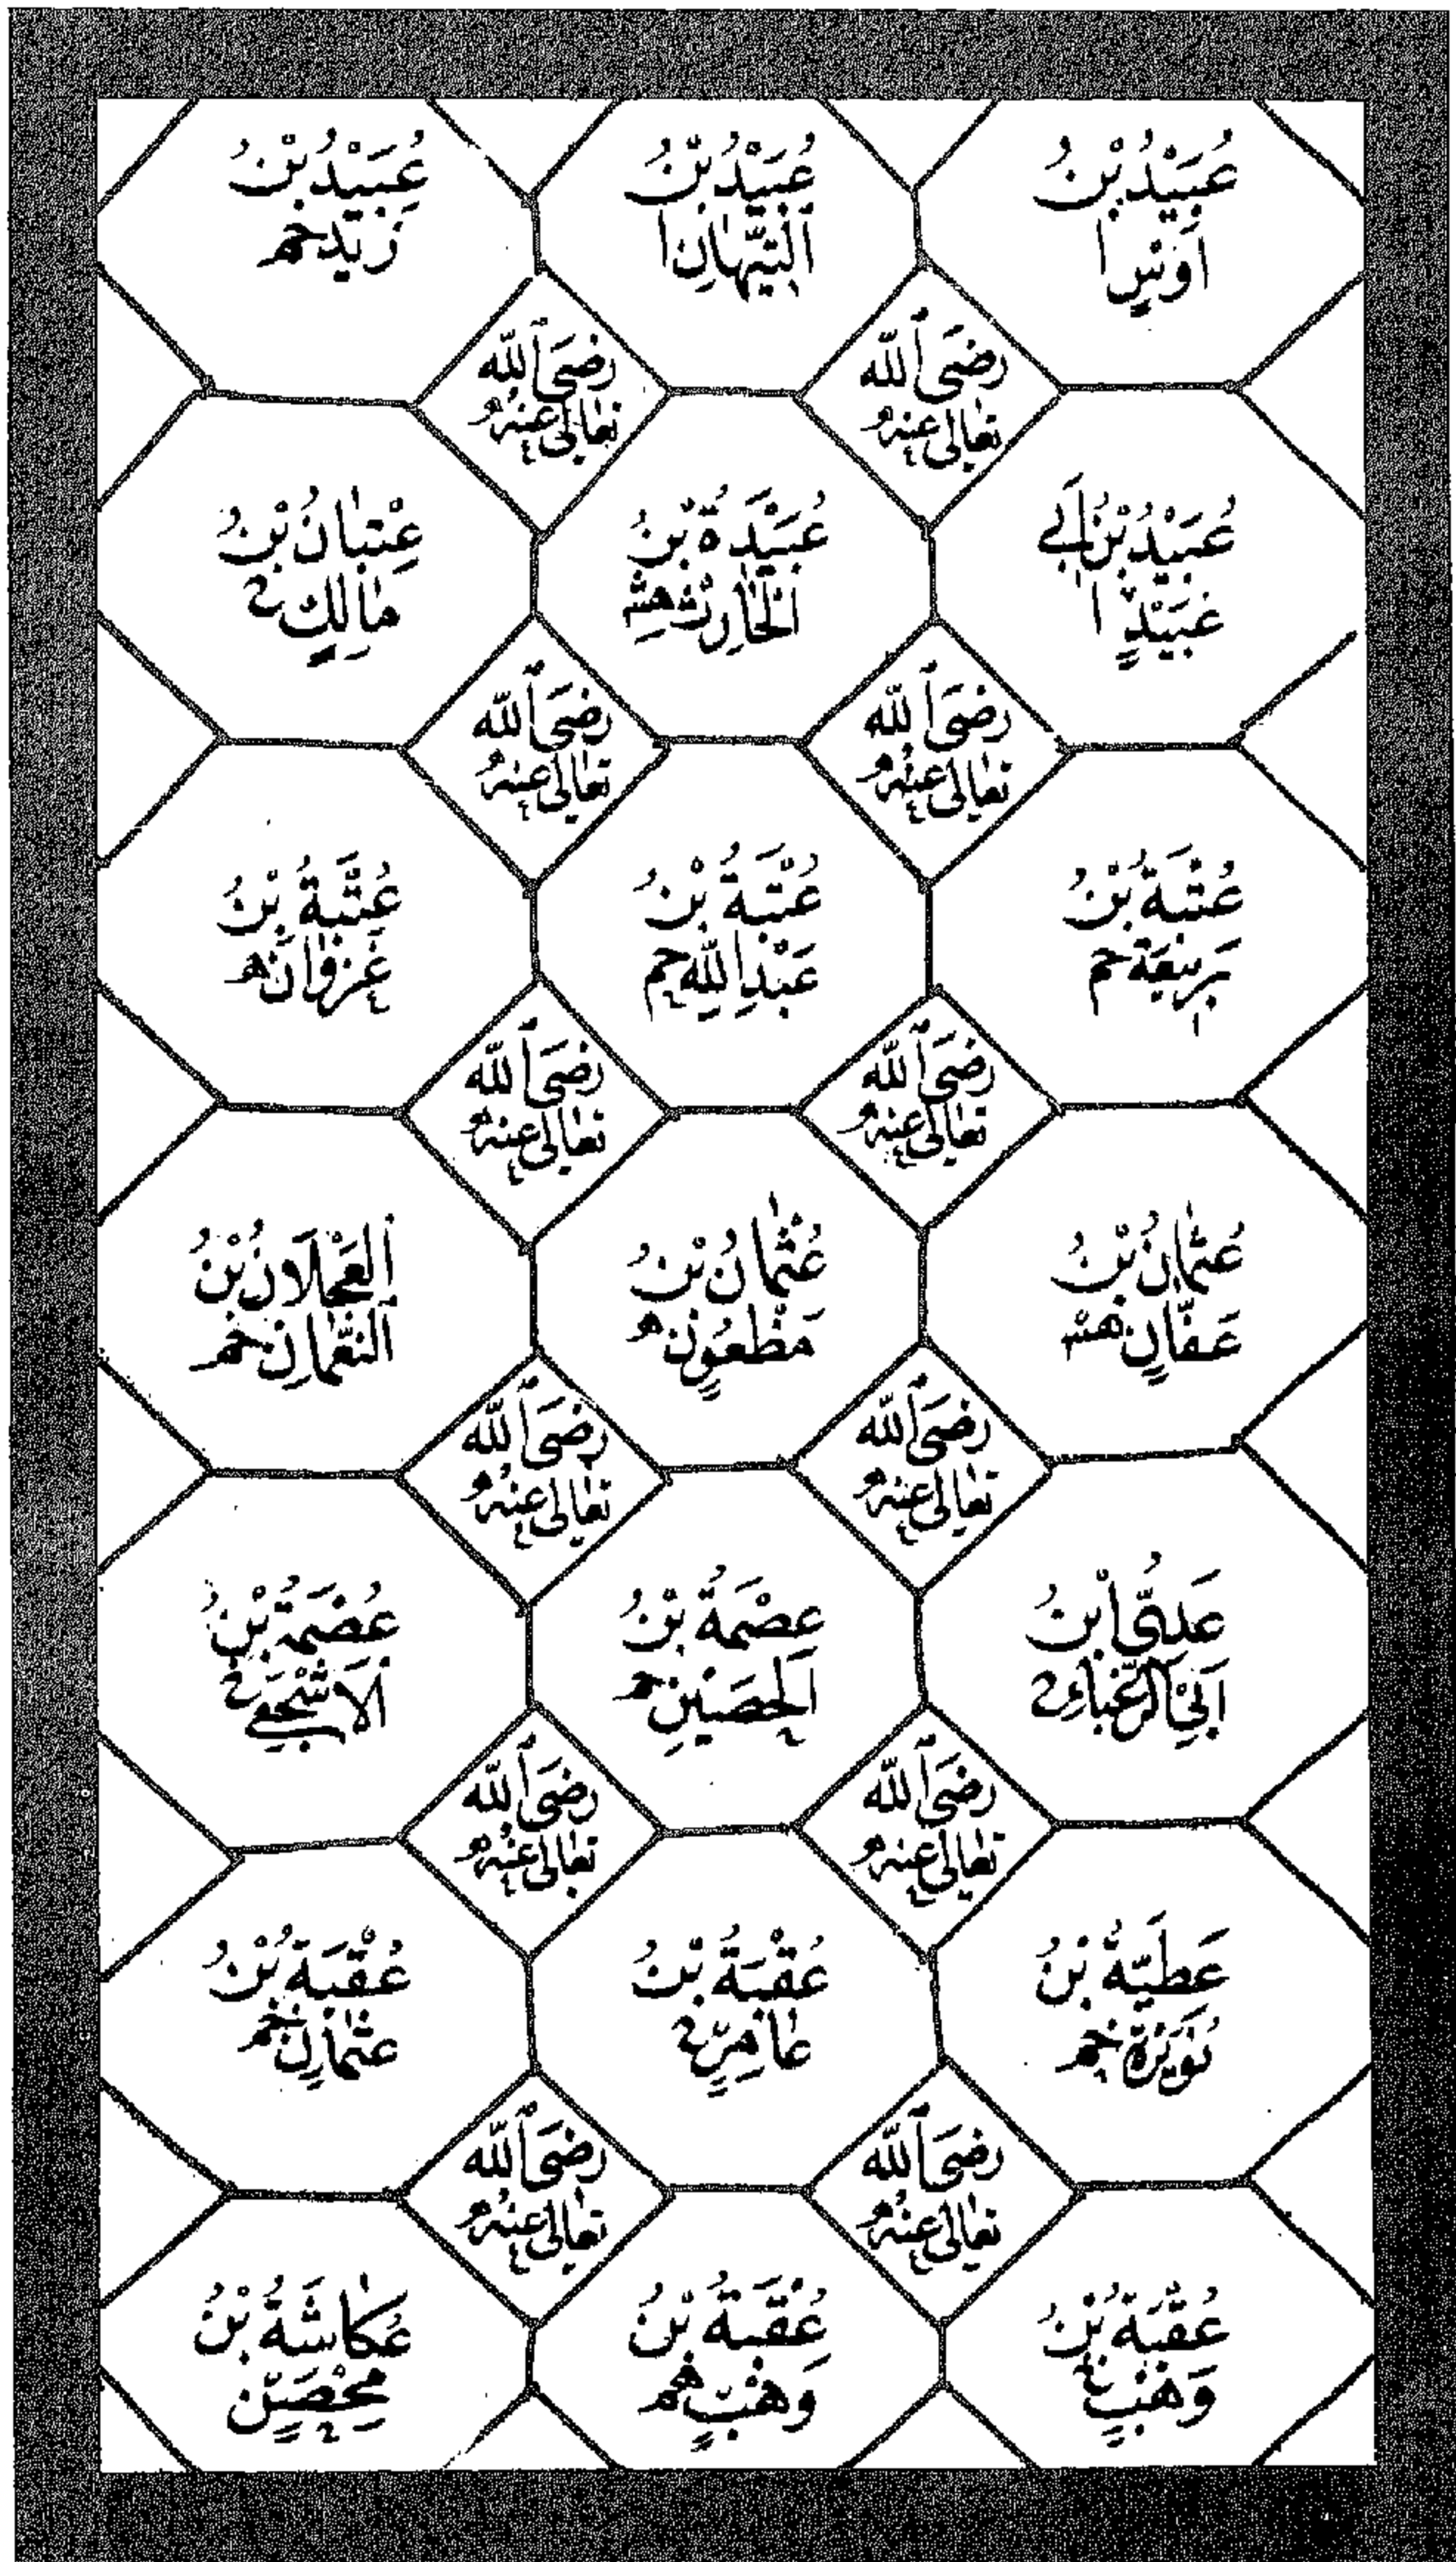 عُبَيْدُ بْنُ
اَوْسٍ ا
عُبَيْدُ بْنُ
اَلتَّيِّهَانِ ا
عُبَيْدُ بْنُ
زَيْدٍ خم
رَضِیَ اللّٰهُ
تَعَالٰی عَنْهُ
رَضِیَ اللّٰهُ
تَعَالٰی عَنْهُ
عُبَيْدُ بْنُ اَبِے
عُبَيْدٍ ا
عُبَيْدَةُ بْنُ
الْحَارِثِ هش
عِتْبَانُ بْنُ
مَالِكٍ
رَضِیَ اللّٰهُ
تَعَالٰی عَنْهُ
رَضِیَ اللّٰهُ
تَعَالٰی عَنْهُ
عُتْبَةُ بْنُ
رَبِيْعَةَ خم
عُتْبَةُ بْنُ
عَبْدِ اللّٰهِ خم
عُتْبَةُ بْنُ
غَزْوَانَ ه
رَضِیَ اللّٰهُ
تَعَالٰی عَنْهُ
رَضِیَ اللّٰهُ
تَعَالٰی عَنْهُ
عُثْمَانُ بْنُ
عَفَّانٍ هش
عُثْمَانُ بْنُ
مَظْعُوْنٍ ه
اَلْعَجْلَانُ بْنُ
النُّعْمَانِ خم
رَضِیَ اللّٰهُ
تَعَالٰی عَنْهُ
رَضِیَ اللّٰهُ
تَعَالٰی عَنْهُ
عَدِیُّ ابْنُ
اَبِی الزَّغْبَاءِ
عِصْمَةُ بْنُ
الْحُصَيْنِ خم
عُصَيْمَةُ بْنُ
الْاَشْجَعِے
رَضِیَ اللّٰهُ
تَعَالٰی عَنْهُ
رَضِیَ اللّٰهُ
تَعَالٰی عَنْهُ
عَطِيَّةُ بْنُ
نُوَيْرَةَ خم
عُقْبَةُ بْنُ
عَامِرٍ
عُقْبَةُ بْنُ
عُثْمَانَ خم
رَضِیَ اللّٰهُ
تَعَالٰی عَنْهُ
رَضِیَ اللّٰهُ
تَعَالٰی عَنْهُ
عُقْبَةُ بْنُ
وَهْبٍ
عُقْبَةُ بْنُ
وَهْبٍ هم
عُكَاشَةُ بْنُ
مِحْصَنٍ